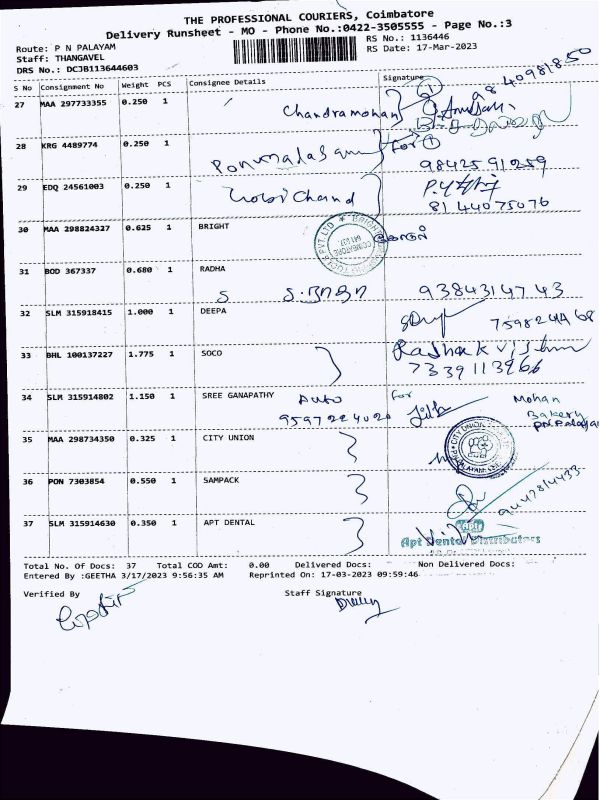 THE PROFESSIONAL COURIERS, Coimbatore
Delivery Runsheet - MO - Phone No.:0422-3505555 - Page No.:3
Route: P N PALAYAM
RS No.: 1136446
Staff: THANGAVEL
RS Date: 17-Mar-2023
DRS No.: DCJB113644603
S No Consignment No Weight PCS Consignee Details Signature
27 MAA 297733355 0.250 1 Chandramohan
28 KRG 4489774 0.250 1 for ①
9842591259
29 EDQ 24561003 0.250 1
8144075076
30 MAA 298824327 0.625 1 BRIGHT
31 BOD 367337 0.680 1 RADHA
S S.ராதா 9384314743
32 SLM 315918415 1.000 1 DEEPA
33 BHL 100137227 1.775 1 SOCO
7339113966
34 SLM 315914802 1.150 1 SREE GANAPATHY Auto for Mohan
9597224020 Bakery
PN.Palayam
35 MAA 298734350 0.325 1 CITY UNION
36 PON 7303854 0.550 1 SAMPACK
37 SLM 315914630 0.350 1 APT DENTAL
Apt Dental Distributors
Total No. Of Docs: 37 Total COD Amt: 0.00 Delivered Docs: Non Delivered Docs:
Entered By :GEETHA 3/17/2023 9:56:35 AM Reprinted On: 17-03-2023 09:59:46
Verified By Staff Signature